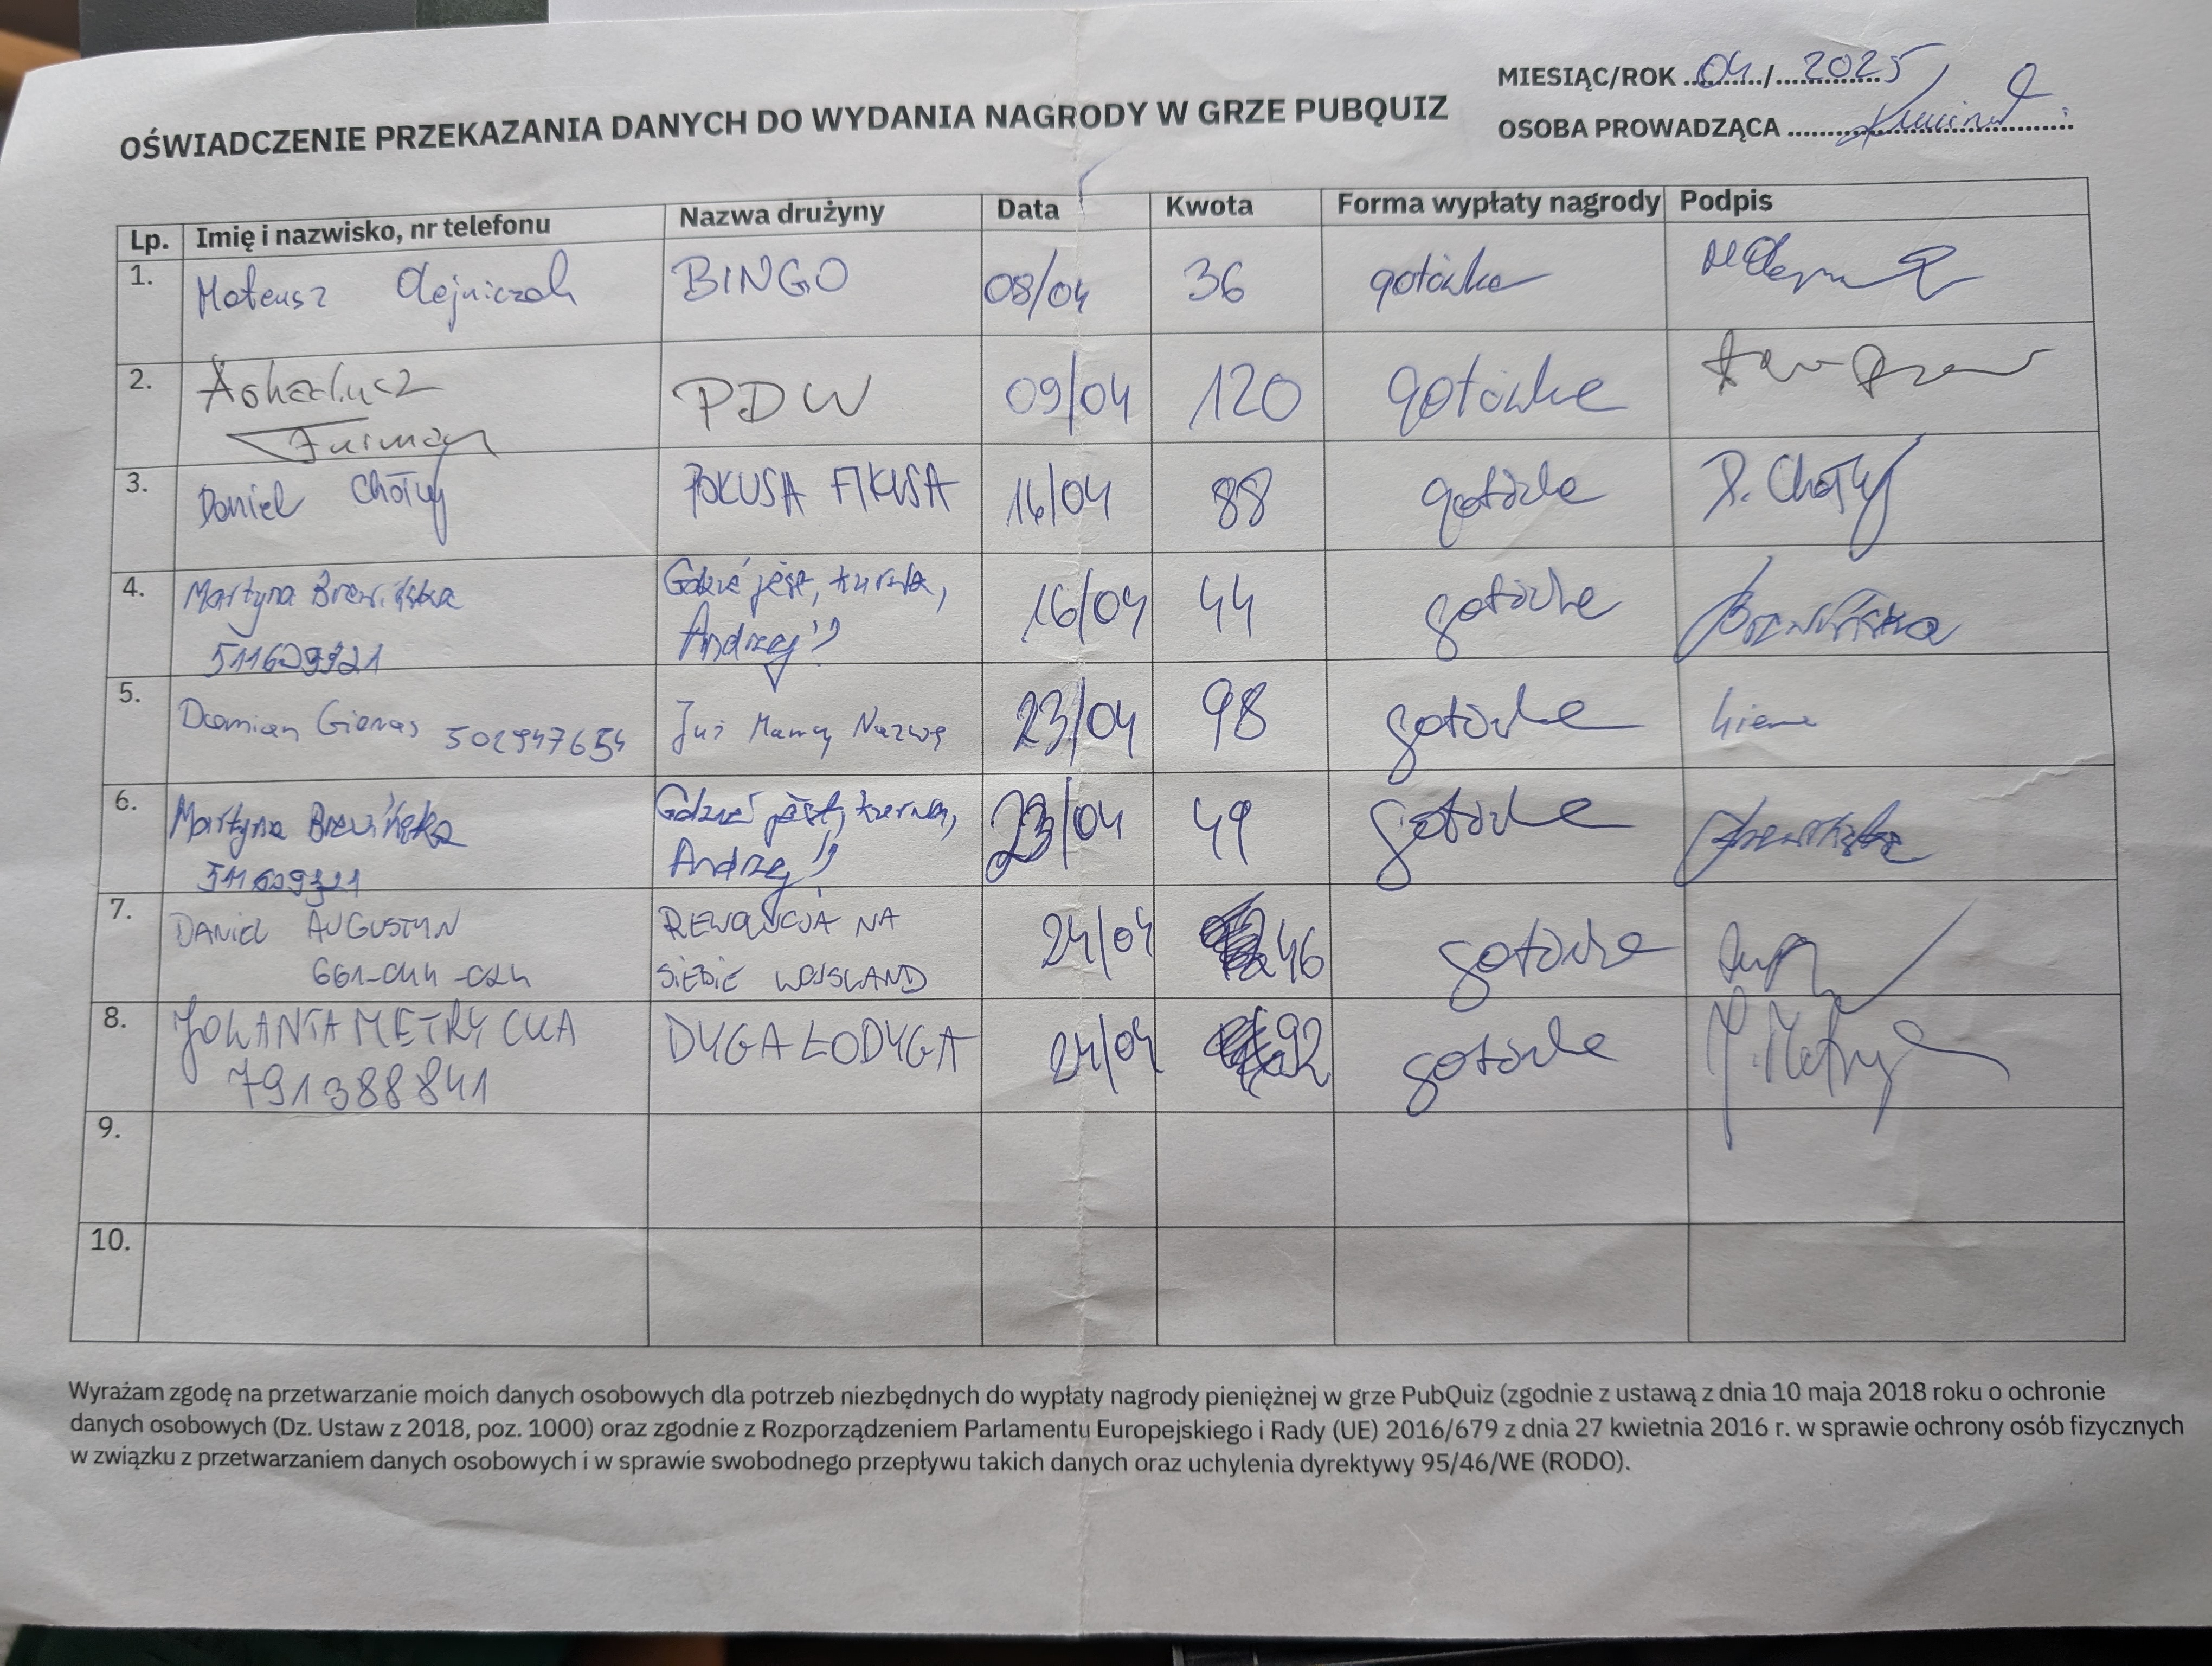 MIESIĄC/ROK 04/2025
OŚWIADCZENIE PRZEKAZANIA DANYCH DO WYDANIA NAGRODY W GRZE PUBQUIZ
OSOBA PROWADZĄCA
Lp. Imię i nazwisko, nr telefonu Nazwa drużyny Data Kwota Forma wypłaty nagrody Podpis
1. Mateusz Olejniczak BINGO 08/04 36 gotówka
2. Arkadiusz PDW 09/04 120 gotówka
Furman
3. Daniel Chołuj POKUSA FIKUSA 16/04 88 gotówka D. Chołuj
4. Martyna Gdzie jest, kurwa, 16/04 44 gotówka
Andrzej
5. Damian Gieras 502947654 Już Mamy Nazwę 23/04 98 gotówka
6. Martyna Gdzie jest, kurwa, 23/04 49 gotówka
Andrzej
7. DANIEL AUGUSTYN REWOLUCJA NA 24/04 46 gotówka
661-044-024 SIEBIE WOJSLAND
8. JOLANTA METRYCKA DYGA ŁODYGA 24/04 92 gotówka
791388841
9.
10.
Wyrażam zgodę na przetwarzanie moich danych osobowych dla potrzeb niezbędnych do wypłaty nagrody pieniężnej w grze PubQuiz (zgodnie z ustawą z dnia 10 maja 2018 roku o ochronie
danych osobowych (Dz. Ustaw z 2018, poz. 1000) oraz zgodnie z Rozporządzeniem Parlamentu Europejskiego i Rady (UE) 2016/679 z dnia 27 kwietnia 2016 r. w sprawie ochrony osób fizycznych
w związku z przetwarzaniem danych osobowych i w sprawie swobodnego przepływu takich danych oraz uchylenia dyrektywy 95/46/WE (RODO).